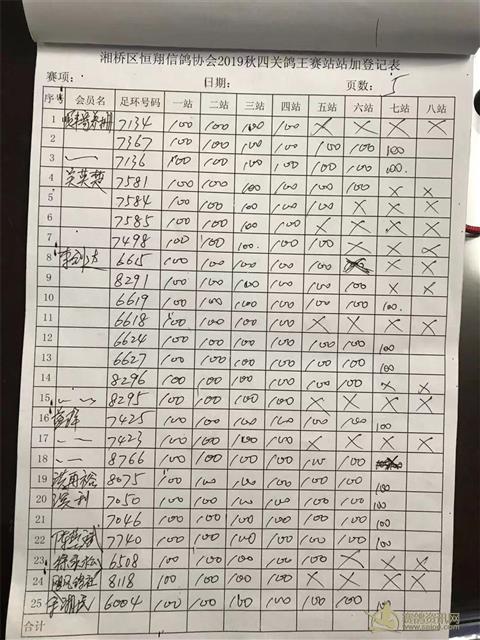 湘桥区恒翔信鸽协会2019秋四关鸽王赛站站加登记表
赛项: 日期: 页数: 5
序号 会员名 足环号码 一站 二站 三站 四站 五站 六站 七站 八站
1 7134 100 100 100 100 × × × ×
2 7367 100 100 100 100 100 100 100
3 7136 100 100 100 100 100 100 100.
4 吴英楚 7581 100 100 100 100 100 100 × ×
5 7584 100 100 100 100 100 × × ×
6 7585 100 100 100 100 × × × ×
7 7498 100 100 100. 100 100 × × ×
8 6615 100 100 100 100 100
9 8291 100 100 100 100 100 100 × ×
10 6619 100 100 100 100 100 100 100.
11 6618 100 100 100 100 × × × ×
12 6624 100 100 100 100 100 100 100
13 6627 100 100 100 100 100 100 100
14 8296 100 100 100 100 100 100 × ×
15 8295 100 100 100 100 × × × ×
16 7425 100 100 100 100 100 100 100
17 7423 100 100 100 100 × × × ×
18 8766 100 100 100 100 100 100
19 8075 100 100 100 100 100 100 100
20 7050 100 100 100 100 100 100 100
21 7046 100 100 100 100 100 100 100
22 7740 100 100 100 100 100 100 100
23 6508 100 100 100 100 100 × × ×
24 8118 100 100 100 100 × × × ×
25 6004 100 100 100 100 100 100 100
合计